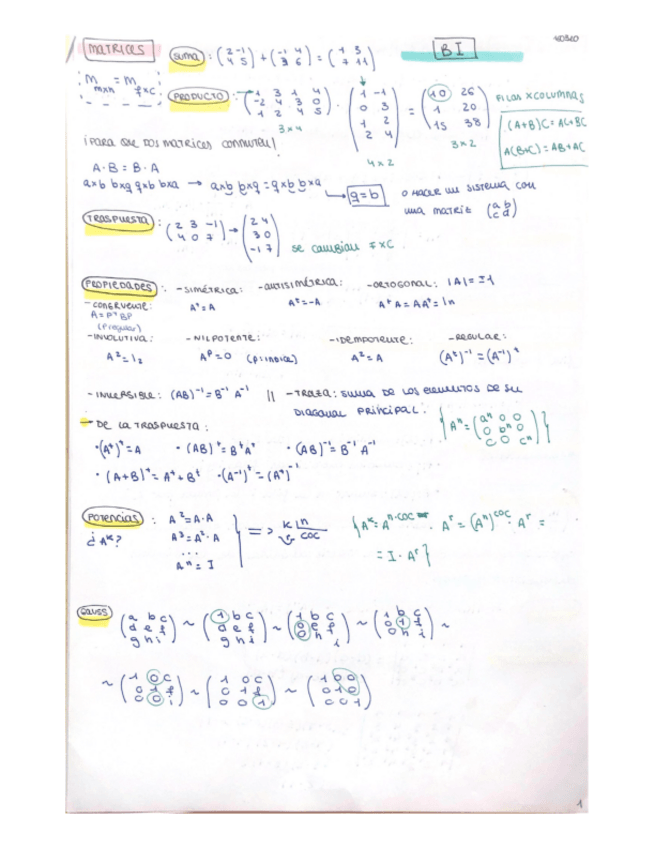 MATRICES
SUMA : (2 -1 / 4 5) + (-1 4 / 3 6) = (1 3 / 7 11)
BI
M m×n = M f×c
PRODUCTO : (1 3 1 4 / -2 4 3 0 / 1 2 4 5) · (1 -1 / 0 3 / 1 2 / 2 4) = (10 26 / 1 20 / 15 38)
3×4
4×2
3×2
FILAS X COLUMNAS
(A+B)C = AC+BC
A(B+C) = AB+AC
¡PARA QUE DOS MATRICES CONMUTEN!
A·B = B·A
axb bxq qxb bxa → axb bxq = qxb bxa → q=b
O HACER UN SISTEMA CON
UNA MATRIZ (a b / c d)
TRASPUESTA : (2 3 -1 / 4 0 7) → (2 4 / 3 0 / -1 7)
se cambian F×C
PROPIEDADES : - SIMÉTRICA: - ANTISIMÉTRICA: - ORTOGONAL: |A|=±1
A^t=A A^t=-A A^t A = AA^t = In
- CONGRUENTE:
A=P^t BP
(P regular)
- INVOLUTIVA: - NILPOTENTE: - IDEMPOTENTE: - REGULAR:
A²=I₂ A^p=0 (p: índice) A²=A (A^t)^-1 = (A^-1)^t
- INVERSIBLE: (AB)^-1 = B^-1 A^-1 || - TRAZA: SUMA DE LOS ELEMENTOS DE SU
DIAGONAL PRINCIPAL.
{A^n = (a^n 0 0 / 0 b^n 0 / 0 0 c^n)}
→ DE LA TRASPUESTA :
· (A^t)^t = A · (AB)^t = B^t A^t · (AB)^-1 = B^-1 A^-1
· (A+B)^t = A^t + B^t · (A^-1)^t = (A^t)^-1
POTENCIAS :
¿A^k?
A²=A·A
A³=A²·A
...
A^n = I
=> k |n
r coc
{A^k = A^n·coc · A^r = (A^n)^coc · A^r =
= I · A^r}
GAUSS (a b c / d e f / g h i) ~ (1 b c / d e f / g h i) ~ (1 b c / 0 e f / 0 h i) ~ (1 b c / 0 1 f / 0 h i) ~
~ (1 0 c / 0 1 f / 0 0 i) ~ (1 0 c / 0 1 f / 0 0 1) ~ (1 0 0 / 0 1 0 / 0 0 1)
1